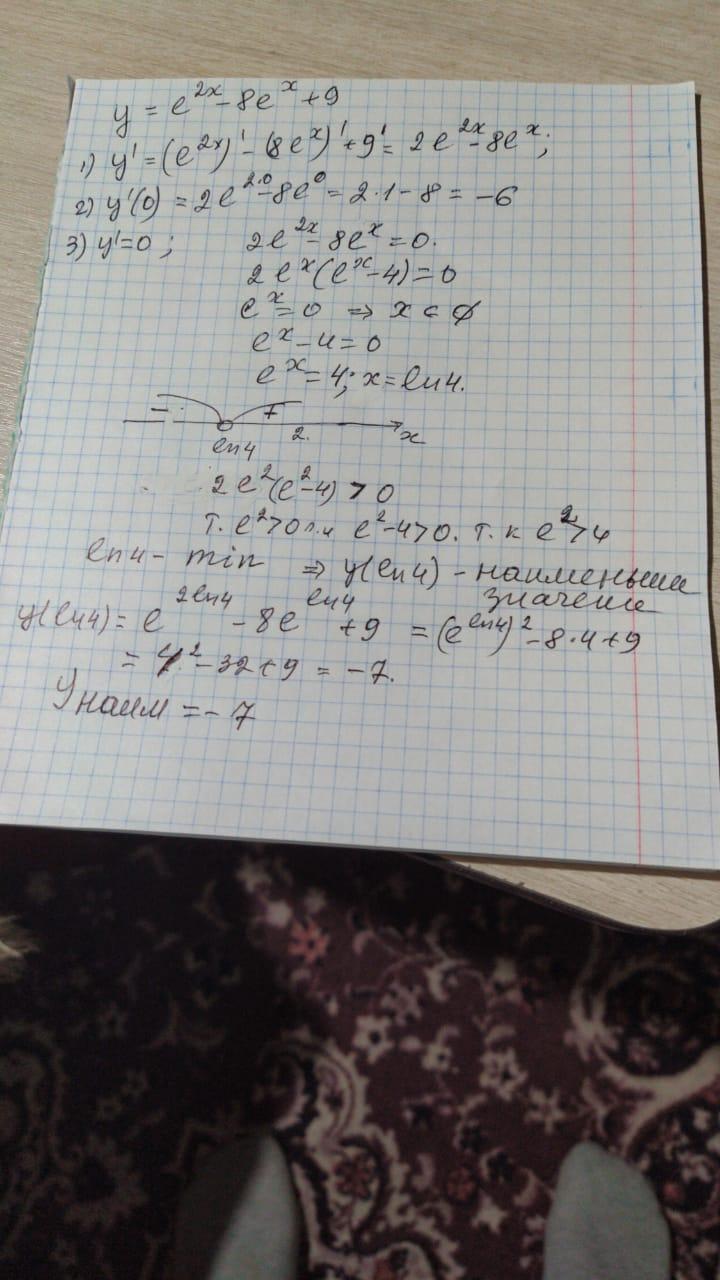 y = e^2x - 8e^x + 9
1) y' = (e^2x)' - (8e^x)' + 9' = 2e^2x - 8e^x;
2) y'(0) = 2e^2·0 - 8e^0 = 2·1 - 8 = -6
3) y'=0; 2e^2x - 8e^x = 0.
2e^x(e^x - 4) = 0
e^x = 0 ⇒ x ∈ ∅
e^x - 4 = 0
e^x = 4; x = ln4.
- +
ln4 2. x
2e^2(e^2 - 4) > 0
т. e^2>0 и e^2-4>0. т. к e^2>4
ln4 - min ⇒ y(ln4) - наименьшее
значение
y(ln4) = e^2ln4 - 8e^ln4 + 9 = (e^ln4)^2 - 8·4+9
= 4^2 - 32 + 9 = -7.
Yнаим = -7